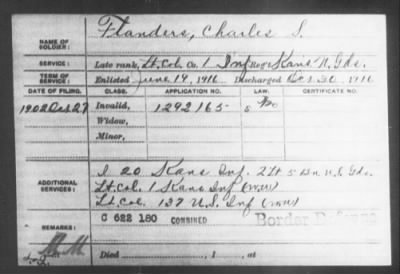 NAME OF SOLDIER: Flanders, Charles S.
SERVICE: Late rank, Lt. Col. Co. 1 Inf Reg't Kans. N. Gds.
TERM OF SERVICE: Enlisted June 19, 1916 Discharged Oct 30, 1916
DATE OF FILING. CLASS. APPLICATION NO. LAW. CERTIFICATE NO.
Invalid, 1292165
Widow,
Minor,
ADDITIONAL SERVICES: I 20 Kans Inf. 2 Lt 5 Bn N. Gds.
Lt. Col. 1 Kans Inf (WW)
Lt. Col. 137 U.S. Inf (WW)
C 622 180 COMBINED Border
REMARKS:
Died , 1 , at